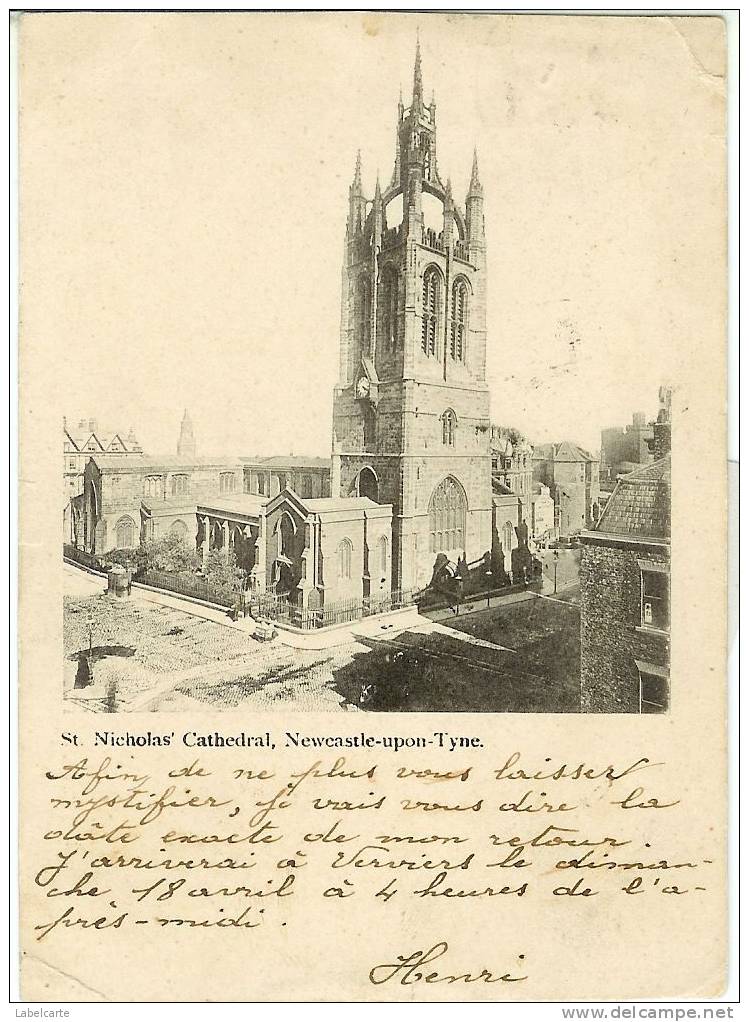 St. Nicholas' Cathedral, Newcastle-upon-Tyne.
Afin de ne plus vous laisser
mystifier, je vais vous dire la
date exacte de mon retour.
J'arriverai à Verviers le diman-
che 18 avril à 4 heures de l'a-
près-midi.
Henri
Labelcarte
www.delcampe.net